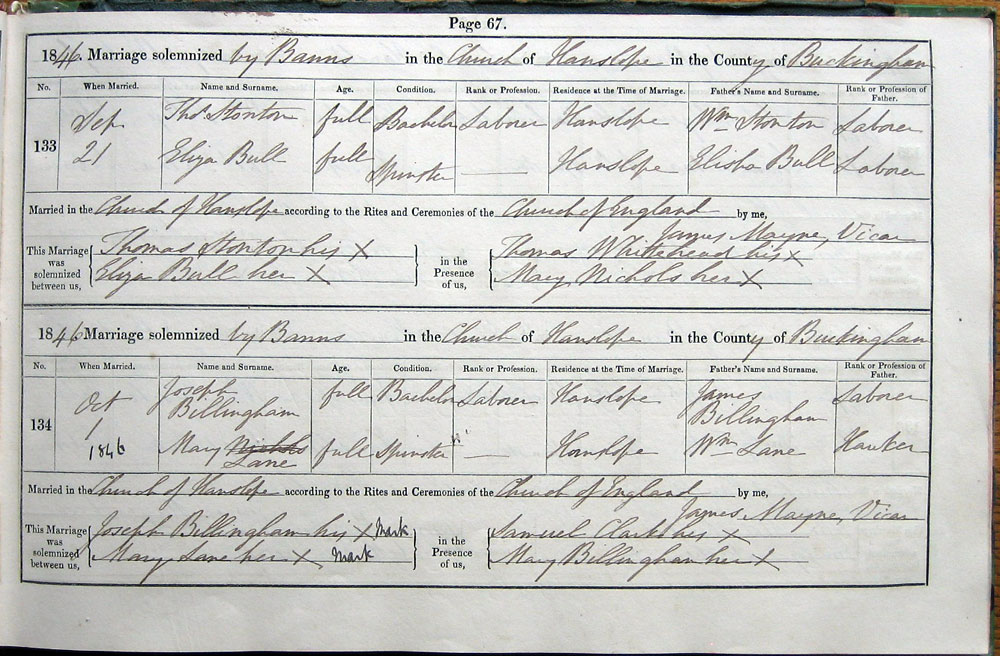 Page 67.
1846. Marriage solemnized by Banns in the Church of Hanslope in the County of Buckingham
No. When Married. Name and Surname. Age. Condition. Rank or Profession. Residence at the Time of Marriage. Father's Name and Surname. Rank or Profession of Father.
133 Sep 21 Thos Stonton full Bachelor Laborer Hanslope Wm Stonton Laborer
Eliza Bull full Spinster — Hanslope Elisha Bull Laborer
Married in the Church of Hanslope according to the Rites and Ceremonies of the Church of England by me,
James Mayne, Vicar
This Marriage was solemnized between us, Thomas Stonton his X in the Presence of us, Thomas Whitehead his X
Eliza Bull her X Mary Nichols her X
1846 Marriage solemnized by Banns in the Church of Hanslope in the County of Buckingham
No. When Married. Name and Surname. Age. Condition. Rank or Profession. Residence at the Time of Marriage. Father's Name and Surname. Rank or Profession of Father.
134 Oct 1 1846 Joseph Billingham full Bachelor Laborer Hanslope James Billingham Laborer
Mary Nichols Lane full Spinster — Hanslope Wm Lane Hawker
Married in the Church of Hanslope according to the Rites and Ceremonies of the Church of England by me,
James Mayne, Vicar
This Marriage was solemnized between us, Joseph Billingham his X Mark in the Presence of us, Samuel Clark his X
Mary Lane her X Mark Mary Billingham her X